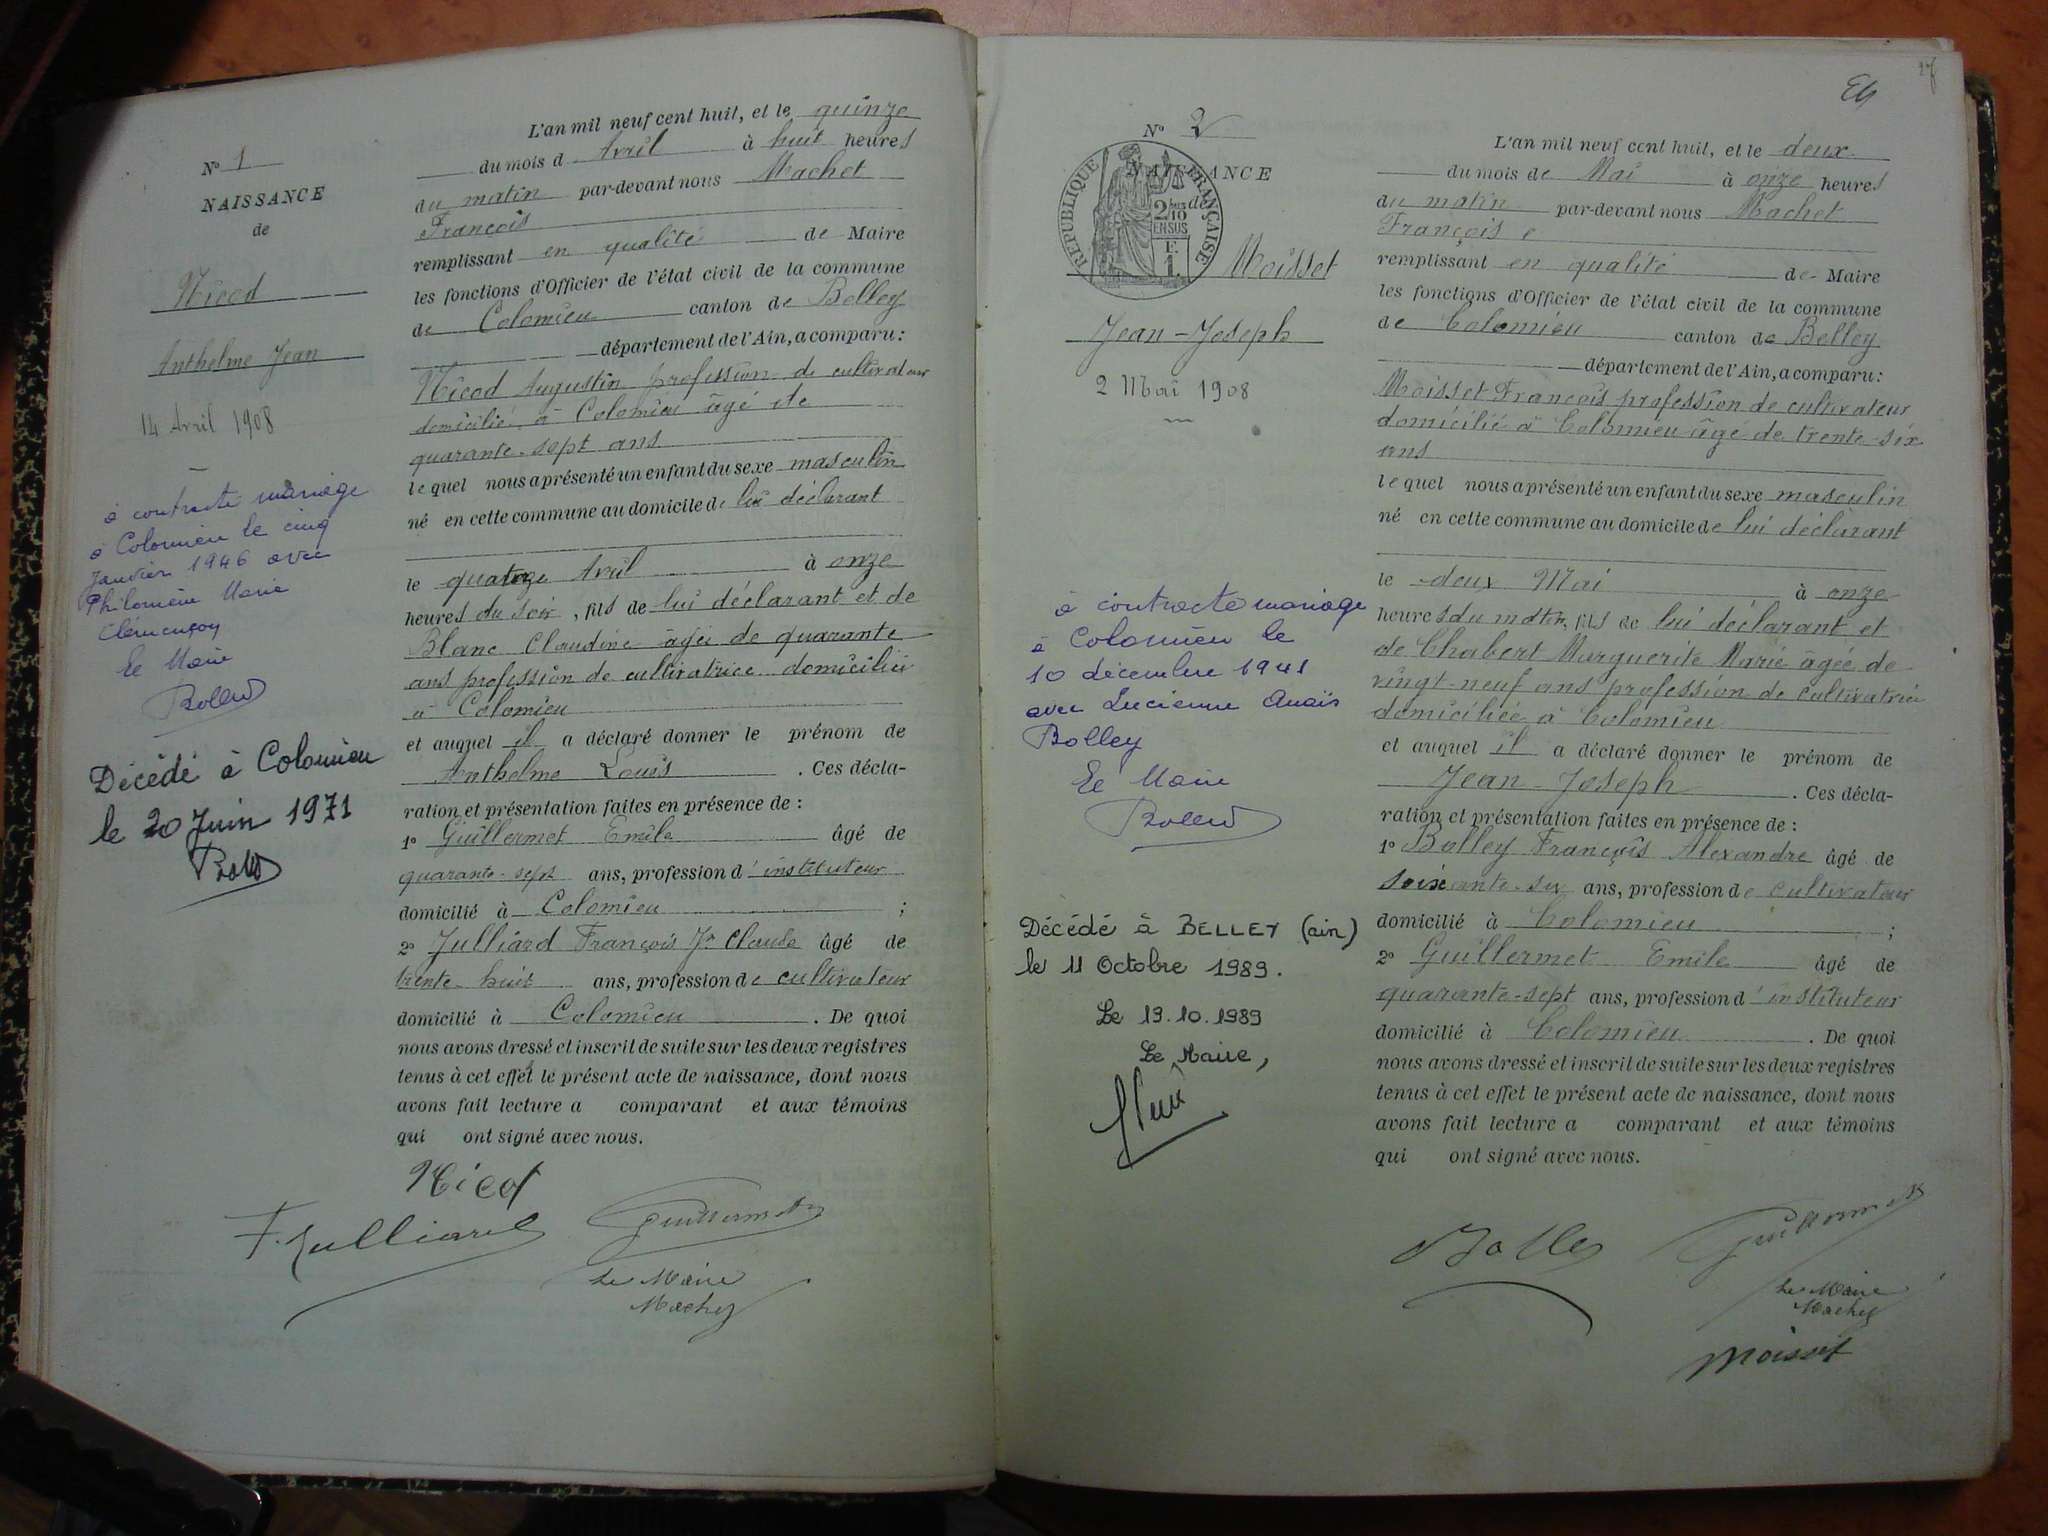 L'an mil neuf cent huit, et le quinze
du mois d Avril à huit heures
du matin par-devant nous Machet
François
remplissant en qualité de Maire
les fonctions d'Officier de l'état civil de la commune
de Colomieu canton de Belley
département de l'Ain, a comparu :
Nicod Augustin profession de cultivateur
domicilié à Colomieu âgé de
quarante-sept ans
lequel nous a présenté un enfant du sexe masculin
né en cette commune au domicile de lui déclarant
le quatorze Avril à onze
heures du soir, fils de lui déclarant et de
Blanc Claudine âgée de quarante
ans profession de cultivatrice domiciliée
à Colomieu
et auquel il a déclaré donner le prénom de
Anthelme Louis. Ces décla-
ration et présentation faites en présence de :
1º Guillermet Emile âgé de
quarante-sept ans, profession d'instituteur
domicilié à Colomieu ;
2º Julliard François Jn Claude âgé de
trente-huit ans, profession de cultivateur
domicilié à Colomieu. De quoi
nous avons dressé et inscrit de suite sur les deux registres
tenus à cet effet le présent acte de naissance, dont nous
avons fait lecture a comparant et aux témoins
qui ont signé avec nous.
Nicod
F. Julliard Guillermet
Le Maire
Machet
Nº 1
NAISSANCE
de
Nicod
Anthelme Jean
14 Avril 1908
a contracté mariage
à Colomieu le cinq
Janvier 1946 avec
Philomène Marie
Clémençon
Le Maire
Décédé à Colomieu
le 20 Juin 1971
27
Nº 2
NAISSANCE
de
REPUBLIQUE FRANÇAISE
2/10 EN SUS
F. 1.
Moisset
Jean-Joseph
2 Mai 1908
a contracté mariage
à Colomieu le
10 décembre 1941
avec Lucienne Anaïs
Bolley
Le Maire
Décédé à BELLEY (ain)
le 11 Octobre 1989.
Le 19.10.1989
Le Maire,
L'an mil neuf cent huit, et le deux
du mois de Mai à onze heures
du matin par-devant nous Machet
François
remplissant en qualité de Maire
les fonctions d'Officier de l'état civil de la commune
de Colomieu canton de Belley
département de l'Ain, a comparu :
Moisset François profession de cultivateur
domicilié à Colomieu âgé de trente-six
ans
lequel nous a présenté un enfant du sexe masculin
né en cette commune au domicile de lui déclarant
le deux Mai à onze
heures du matin, fils de lui déclarant et
de Chabert Marguerite Marie âgée de
vingt-neuf ans profession de cultivatrice
domiciliée à Colomieu
et auquel il a déclaré donner le prénom de
Jean-Joseph. Ces décla-
ration et présentation faites en présence de :
1º Bolley François Alexandre âgé de
soixante-six ans, profession de cultivateur
domicilié à Colomieu ;
2º Guillermet Emile âgé de
quarante-sept ans, profession d'instituteur
domicilié à Colomieu. De quoi
nous avons dressé et inscrit de suite sur les deux registres
tenus à cet effet le présent acte de naissance, dont nous
avons fait lecture a comparant et aux témoins
qui ont signé avec nous.
Bolley Guillermet
Le Maire
Machet
Moisset